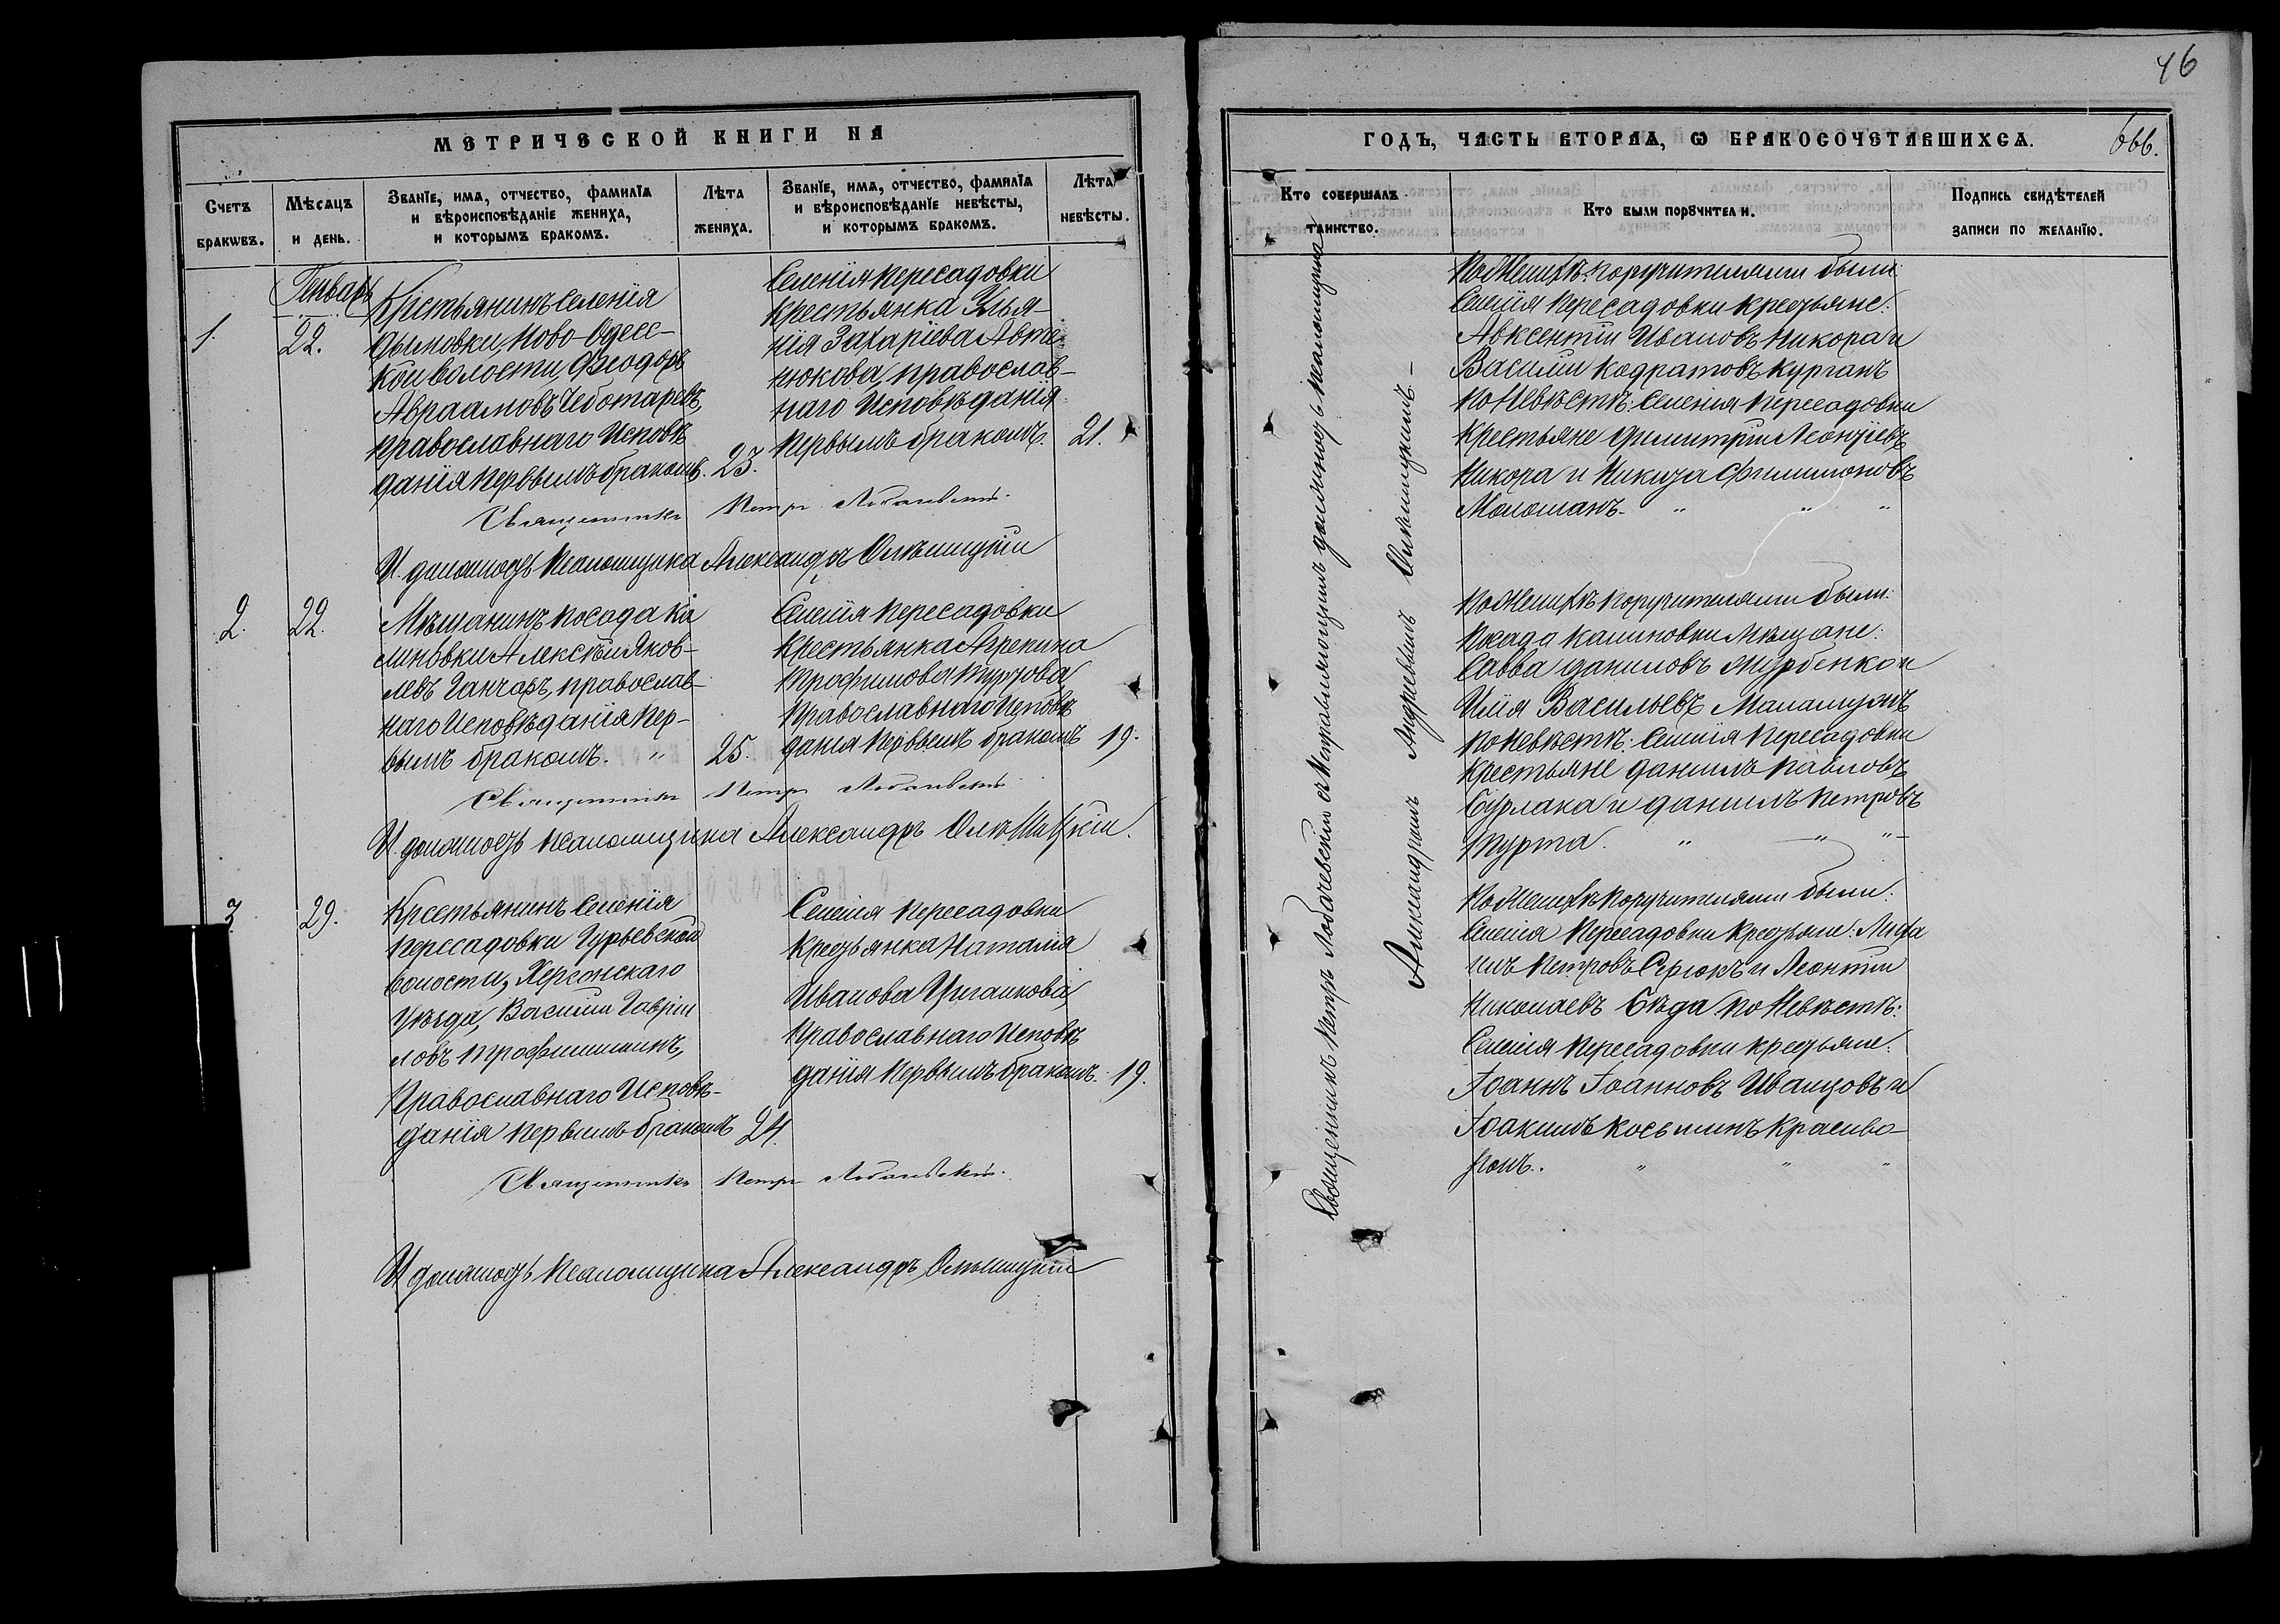 МЕТРИЧЕСКОЙ КНИГИ НА
Счетъ браковъ.
Мѣсяцъ и день.
Званїе, имя, отчество, фамилїя
и вѣроисповѣданїе жениха,
и которымъ бракомъ.
Лѣта
жениха.
Званїе, имя, отчество, фамилїя
и вѣроисповѣданїе невѣсты,
и которымъ бракомъ.
Лѣта
невѣсты.
Генварь
1.
22.
Крестьянинъ Селенія
Дымовки, Ново-Одесс-
кой волости, Феодоръ
Авраамовъ Чеботаревъ,
православнаго Исповѣ
данія первымъ бракомъ.
23.
Селенія Пересадовки
Крестьянка Улья-
нія Захаріева Авте
нюкова, православ-
наго Исповѣданія
первымъ бракомъ.
21.
Священникъ Петръ
И. должность Псаломщика Александръ
2.
22.
Мѣщанинъ посада Ка
линовки Алексѣй Яков-
левъ Ганчаръ, православ-
наго Исповѣданія пер-
вымъ бракомъ. "
25.
Селенія Пересадовки
Крестьянка Агрепина
Трофимова Туртова
Православнаго Исповѣ
данія первымъ бракомъ
19.
Священникъ Петръ
И. должность Псаломщика Александръ
3.
29.
Крестьянинъ Селенія
Пересадовки Гурьевской
волости, Херсонскаго
Уѣзда, Василій Гаврии
ловъ Трофимишинъ,
Православнаго Исповѣ-
данія первымъ бракомъ
24.
Селенія Пересадовки
Крестьянка Наталія
Иванова Цыганкова
Православнаго Исповѣ
данія первымъ бракомъ.
19.
Священникъ Петръ
И должность Псаломщика Александръ
46
666.
ГОДЪ, ЧАСТЬ ВТОРАЯ, Ѡ БРАКОСОЧЕТАВШИХСЯ.
Кто совершалъ
таинство.
Кто были порꙋчители.
Подпись свидѣтелей
записи по желанїю.
Священникъ Петръ Лобачевскій съ Исправляющимъ должность Псаломщика
Александромъ Андреевымъ
По Женихѣ поручителями были:
Селенія Пересадовки крестьяне:
Авксентій Ивановъ Никора и
Василій Кодратовъ Курганъ
По Невѣстѣ: Селенія Пересадовки
Крестьяне Димитрій Леонтіевъ
Никора и Никита Филимоновъ
Моломанъ. " " "
По Женихѣ поручителями были:
Посада Калиновки Мѣщане:
Савва Даниловъ и
Илія Васильевъ
По Невѣстѣ: Селенія Пересадовки
Крестьяне Даніилъ Павловъ
Бурлака и Даніилъ Петровъ
Турта. " " "
По Женихѣ поручителями были:
Селенія Пересадовки Крестьяне: Миха
илъ Петровъ Сердюкъ и Леонтій
Николаевъ Бѣда По Невѣстѣ:
Селенія Пересадовки крестьяне:
Іоаннъ Іоанновъ Иванцовъ и
Іоакимъ Косьминъ Красиво-
ронъ. " " "